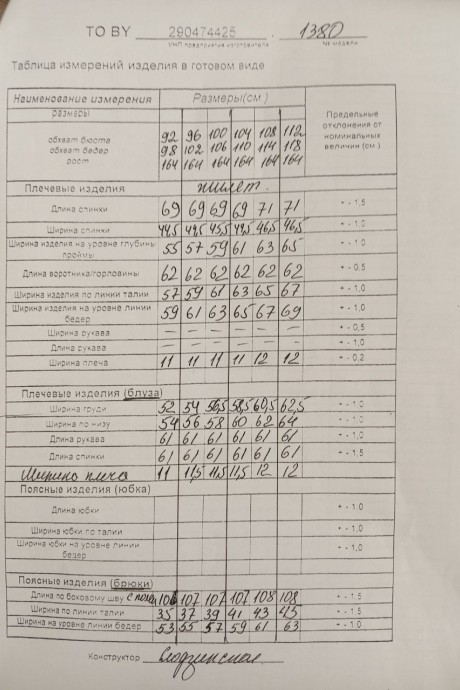 ТО BY 290474425 . 1380
УНП предприятия изготовителя № модели
Таблица измерений изделия в готовом виде
Наименование измерения Размеры(см) Предельные отклонения от номинальных величин (см)
размеры
обхват бюста 92 96 100 104 108 112
обхват бедер 98 102 106 110 114 118
рост 164 164 164 164 164 164
Плечевые изделия жилет.
Длина спинки 69 69 69 69 71 71 + - 1,5
Ширина спинки 46,5 46,5 + - 1,0
Ширина изделия на уровне глубины проймы 55 57 59 61 63 65 + - 1,0
Длина воротника/горловины 62 62 62 62 62 62 + - 0,5
Ширина изделия по линии талии 57 59 61 63 65 67 + - 1,0
Ширина изделия на уровне линии бедер 59 61 63 65 67 69 + - 1,0
Ширина рукава – – – – – – + - 0,5
Длина рукава – – – – – – + - 1,0
Ширина плеча 11 11 11 11 12 12 + - 0,2
Плечевые изделия (блуза)
Ширина груди 52 54 56,5 58,5 60,5 62,5 + - 1,0
Ширина по низу 54 56 58 60 62 64 + - 1,0
Длина рукава 61 61 61 61 61 61 + - 1,0
Длина спинки 61 61 61 61 61 61 + - 1,5
Ширина плеча 11 11,5 11,5 11,5 12 12
Поясные изделия (юбка)
Длина юбки + - 1,0
Ширина юбки по талии + - 1,0
Ширина юбки на уровне линии бедер + - 1,0
Поясные изделия (брюки)
Длина по боковому шву с пояс 106 107 107 107 108 108 + - 1,5
Ширина по линии талии 35 37 39 41 43 45 + - 1,5
Ширина на уровне линии бедер 53 55 57 59 61 63 + - 1,0
Конструктор